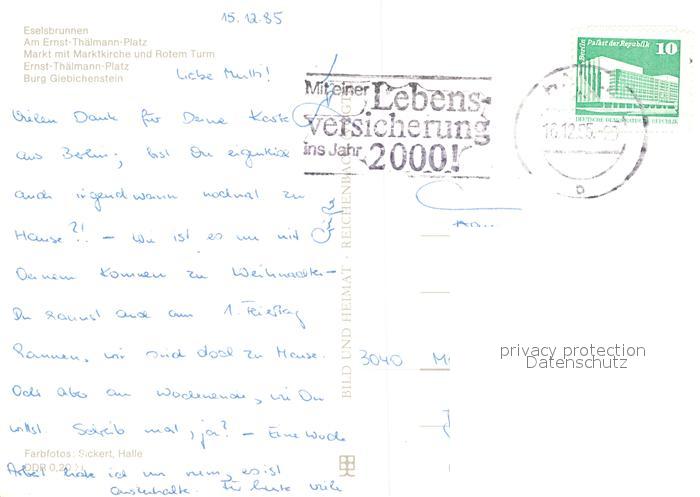 15.12.85
Eselsbrunnen
Am Ernst-Thälmann-Platz
Markt mit Marktkirche und Rotem Turm
Ernst-Thälmann-Platz
Burg Giebichenstein
Liebe Mutti!
Vielen Dank für Deine Karte
aus Berlin; bist Du eigentlich
auch irgendwann nochmal zu
Hause?! – Wie ist es nun mit
Deinem Kommen zu Weihnachten –
Du kannst auch am 1. Feiertag
kommen, wir sind doch zu Hause.
Oder aber am Wochenende, wie Du
willst. Schreib mal, ja? – Eine Woche
Arbeit habe ich nun rum, es ist
auszuhalten. Für heute viele
Farbfotos: Sickert, Halle
DDR 0,20
BILD UND HEIMAT · REICHENBACH
Mit einer Lebens-
versicherung
ins Jahr 2000!
Berlin, Palast der Republik 10
DEUTSCHE DEMOKRATISCHE REPUBLIK
16.12.85
b
3040
privacy protection
Datenschutz